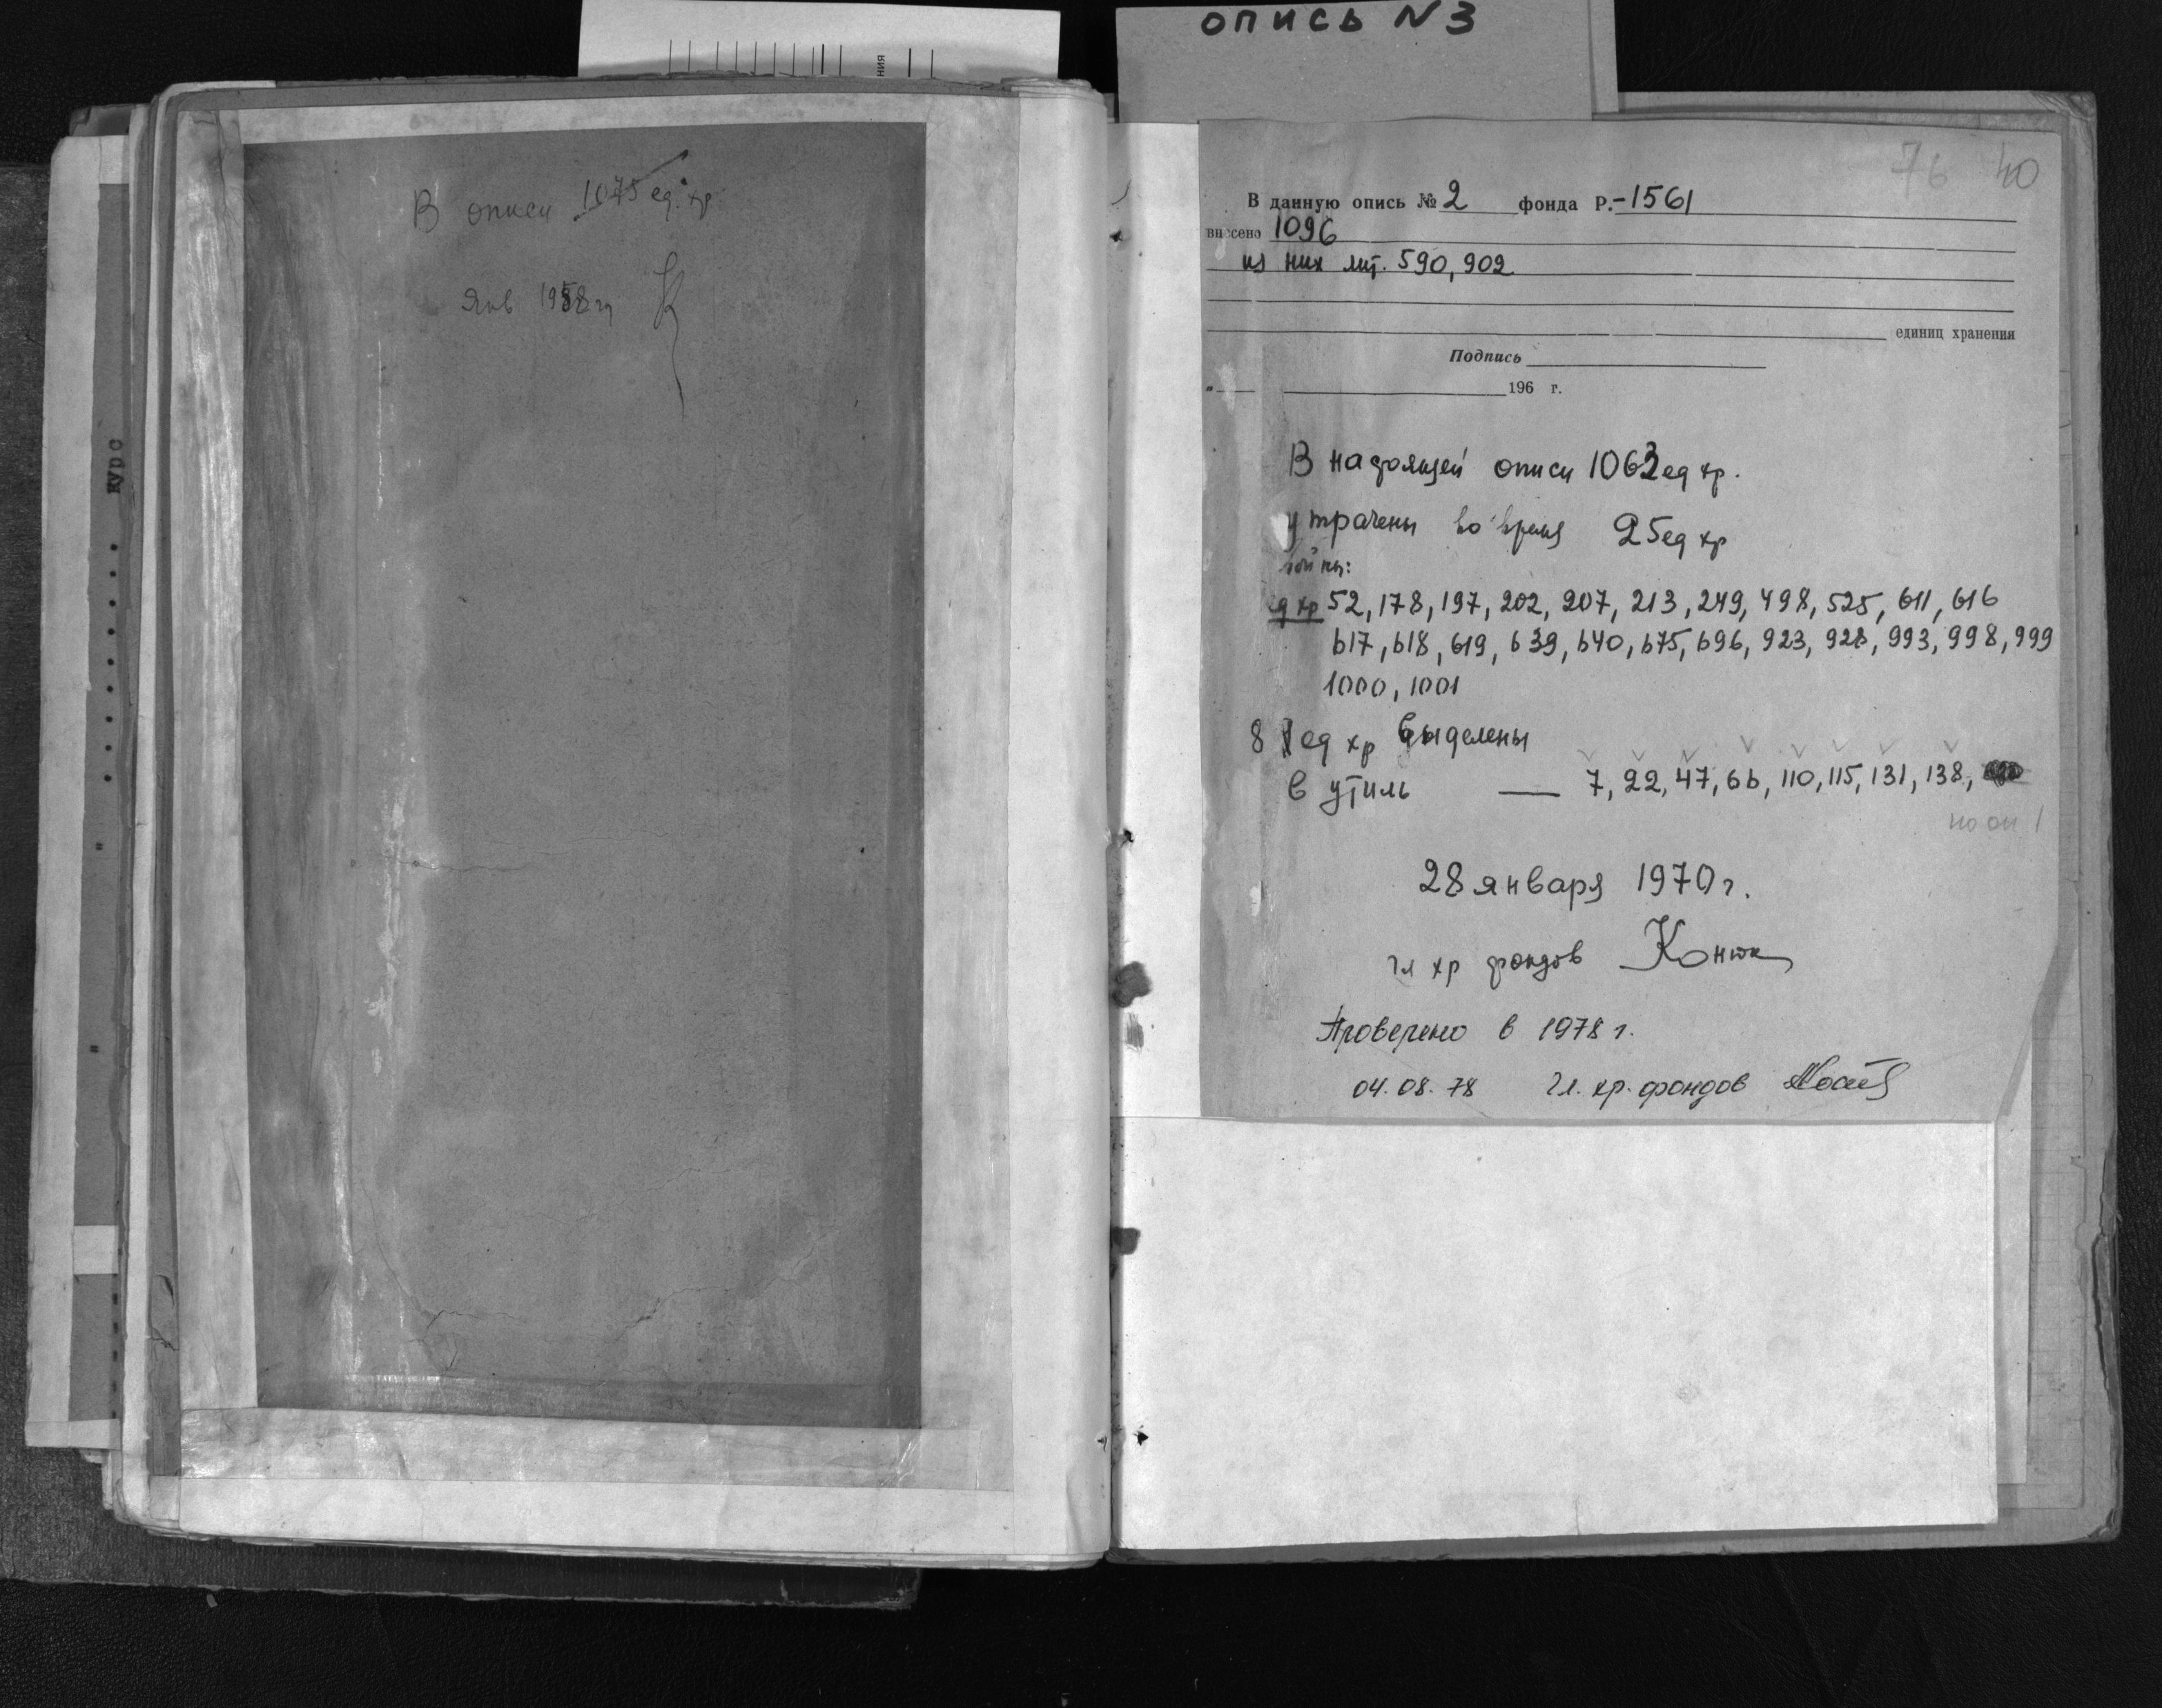 опись N 3
ния
курс
В описи 1075 ед. хр.
Янв 1958 г
76 40
В данную опись № 2 фонда Р.-1561
внесено 1096
из них лит. 590, 902
единиц хранения
Подпись
" 196 г.
В настоящей описи 1063 ед хр.
утрачены во время 25 ед хр
войны:
ед хр 52, 178, 197, 202, 207, 213, 249, 498, 525, 611, 616
617, 618, 619, 639, 640, 675, 696, 923, 928, 993, 998, 999
1000, 1001
8 ед хр выделены
в утиль — 7, 22, 47, 66, 110, 115, 131, 138,
по оп 1
28 января 1970 г.
гл хр фондов
Проверено в 1978 г.
04.08.78 Гл. хр. фондов